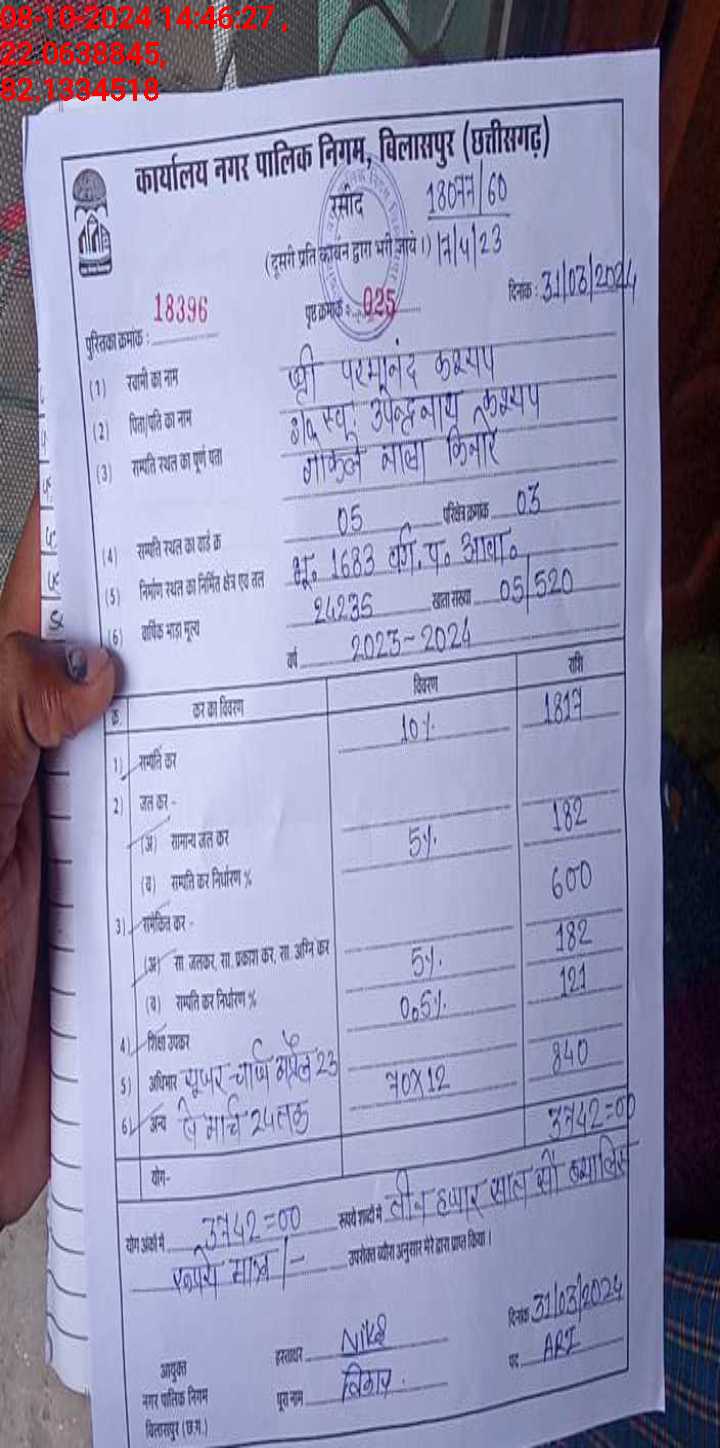 08-10-2024 14:46:27,
22.0638845,
82.1334518
कार्यालय नगर पालिक निगम, बिलासपुर (छत्तीसगढ़)
रसीद
60
(दूसरी प्रति कार्बन द्वारा भरी जाये।)
4/23
पुस्तिका क्रमांक : 18396 पृष्ठ क्रमांक : 025 दिनांक : 31/03/2024
(1) स्वामी का नाम श्री परमानंद कश्यप
(2) पिता/पति का नाम स्व. उपेन्द्रनाथ कश्यप
(3) सम्पति स्थल का पूर्ण पता नाला किनारे
(4) सम्पति स्थल का वार्ड क्र 05 परिक्षेत्र क्रमांक 03
(5) निर्माण स्थल का निर्मित क्षेत्र एव तल भू. 1683 वर्ग. प. आवा.
(6) वार्षिक भाड़ा मूल्य 24235 खाता संख्या 05/520
वर्ष 2023-2024
क्र. कर का विवरण विवरण राशि
1) सम्पति कर 10% 1817
2) जल कर -
(अ) सामान्य जल कर 5% 182
(ब) सम्पति कर निर्धारण % 600
3) समेकित कर -
(अ) सा. जलकर, सा. प्रकाश कर, सा. अग्नि कर 5% 182
(ब) सम्पति कर निर्धारण % 0.5% 121
4) शिक्षा उपकर
5) अधिभार यूजर चार्ज अप्रैल 23 70X12 840
6) अन्य से मार्च 24 तक 3742=00
योग-
योग अंकों में 3742=00 रूपये शब्दों में तीन हजार सात सौ बयालिस
रूपये मात्र/- उपरोक्त ब्यौरा अनुसार मेरे द्वारा प्राप्त किया।
दिनांक 31/03/2024
आयुक्त हस्ताक्षर पद ARI
नगर पालिक निगम पूरा नाम
बिलासपुर (छ.ग.)